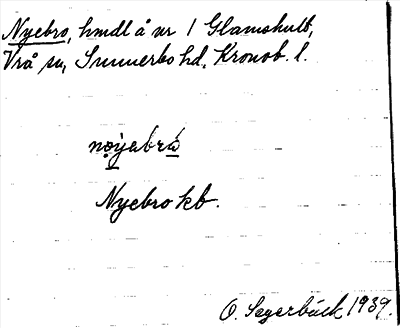 Nyebro, hmdl å nr 1 Glamshult,
Vrå sn, Sunnerbo hd, Kronob. l.
nøyabrå
Nyebro kb.
O. Segerbäck 1939.